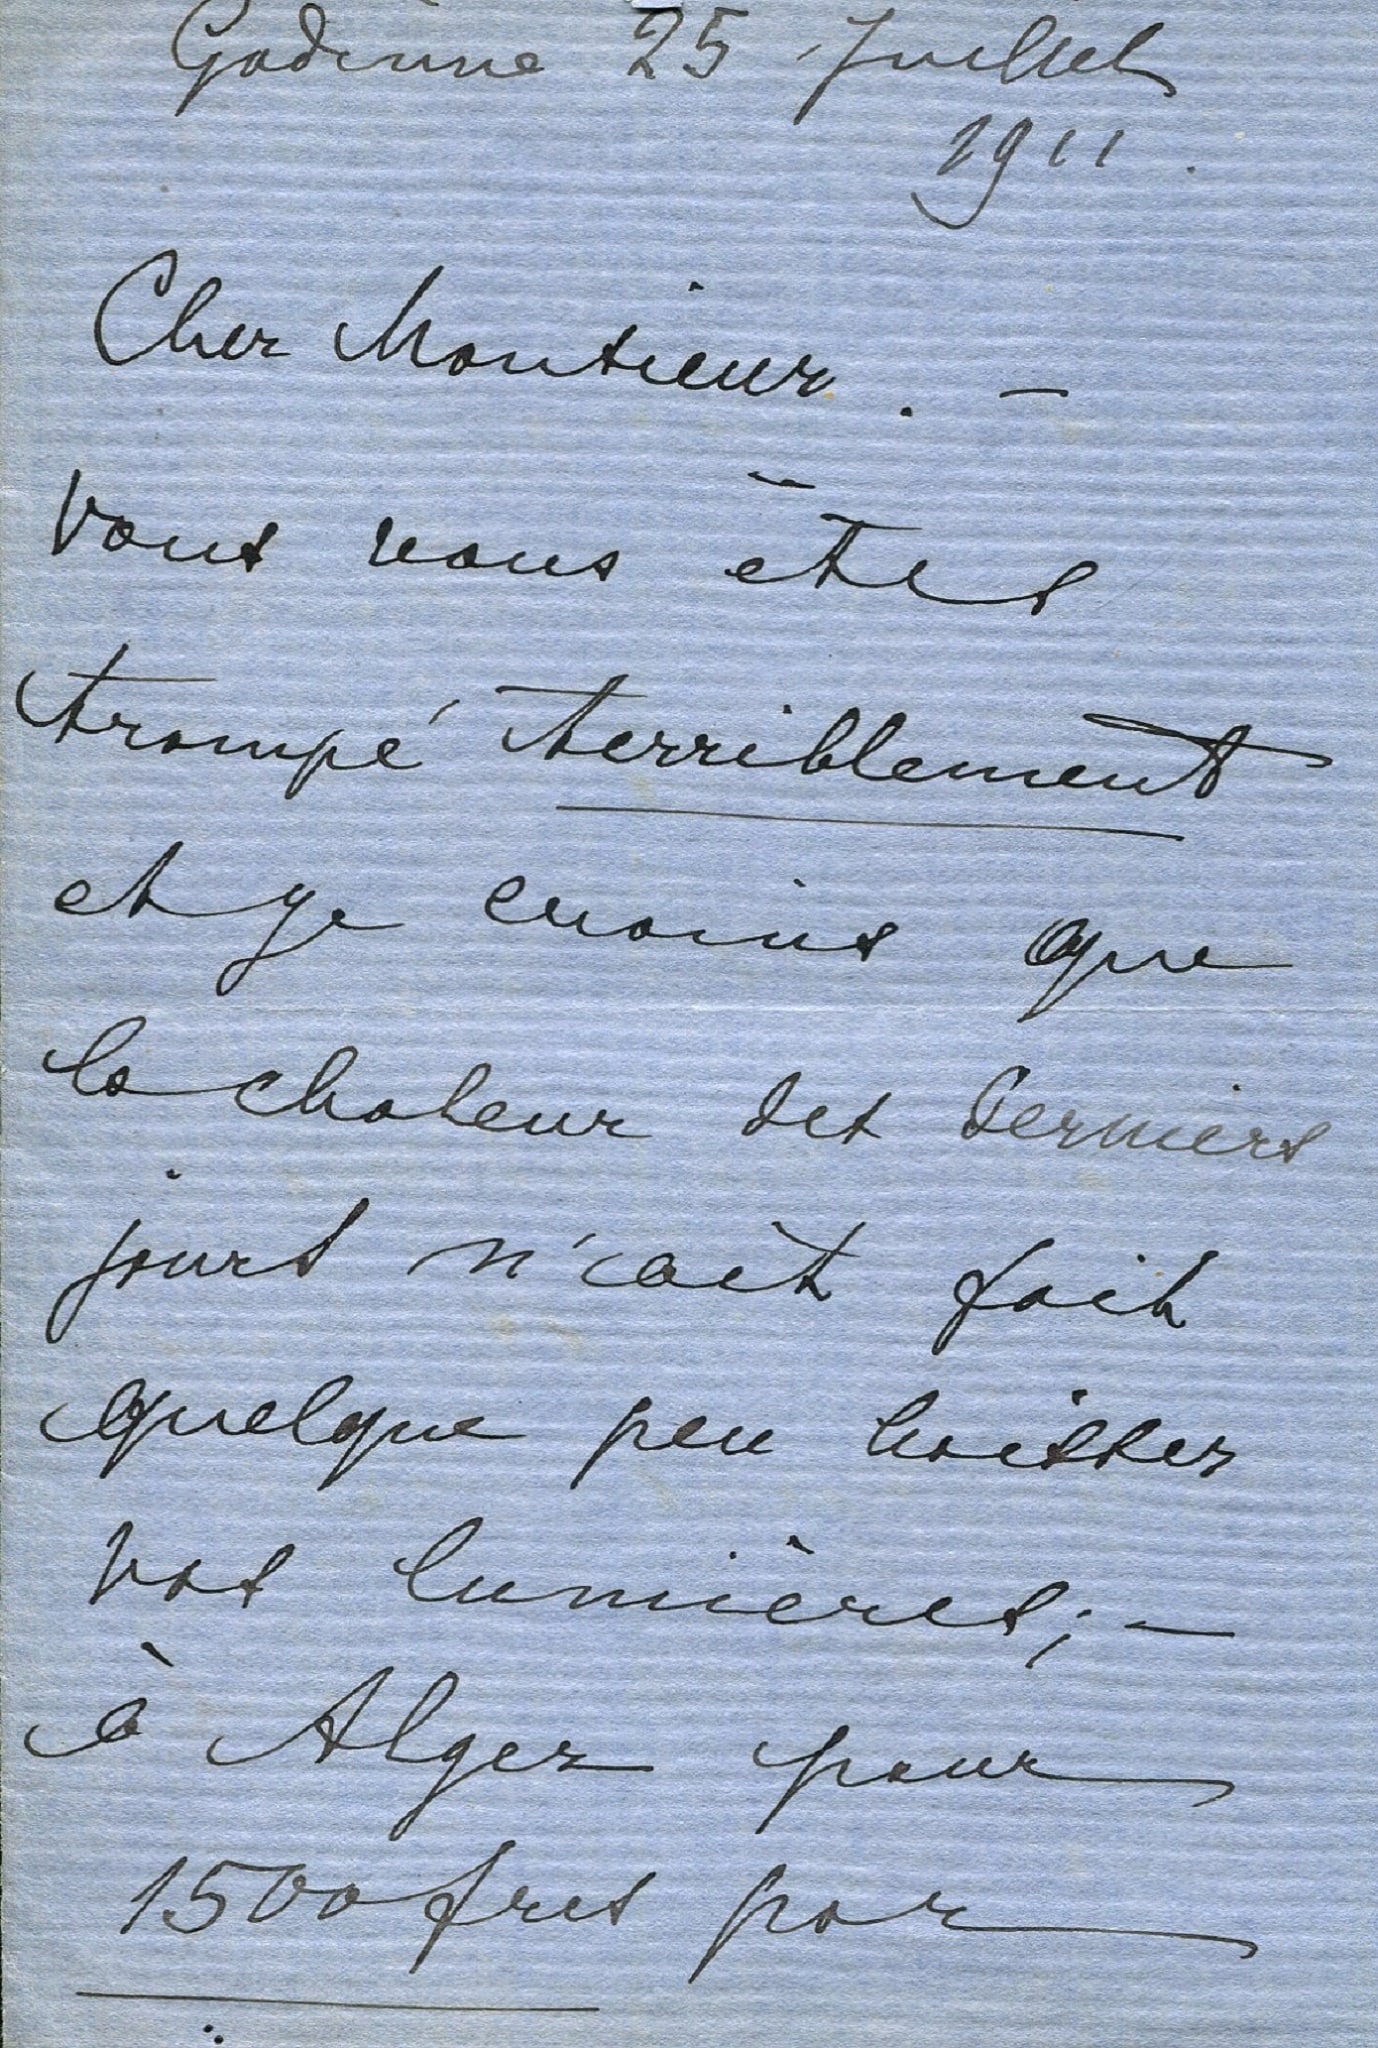 Godinne 25 Juillet
1911.
Cher Monsieur. —
Vous vous êtes
trompé terriblement
et je crains que
la chaleur des derniers
jours n'ait fait
quelque peu baisser
vos lumières; —
à Alger pour
1500 frcs par